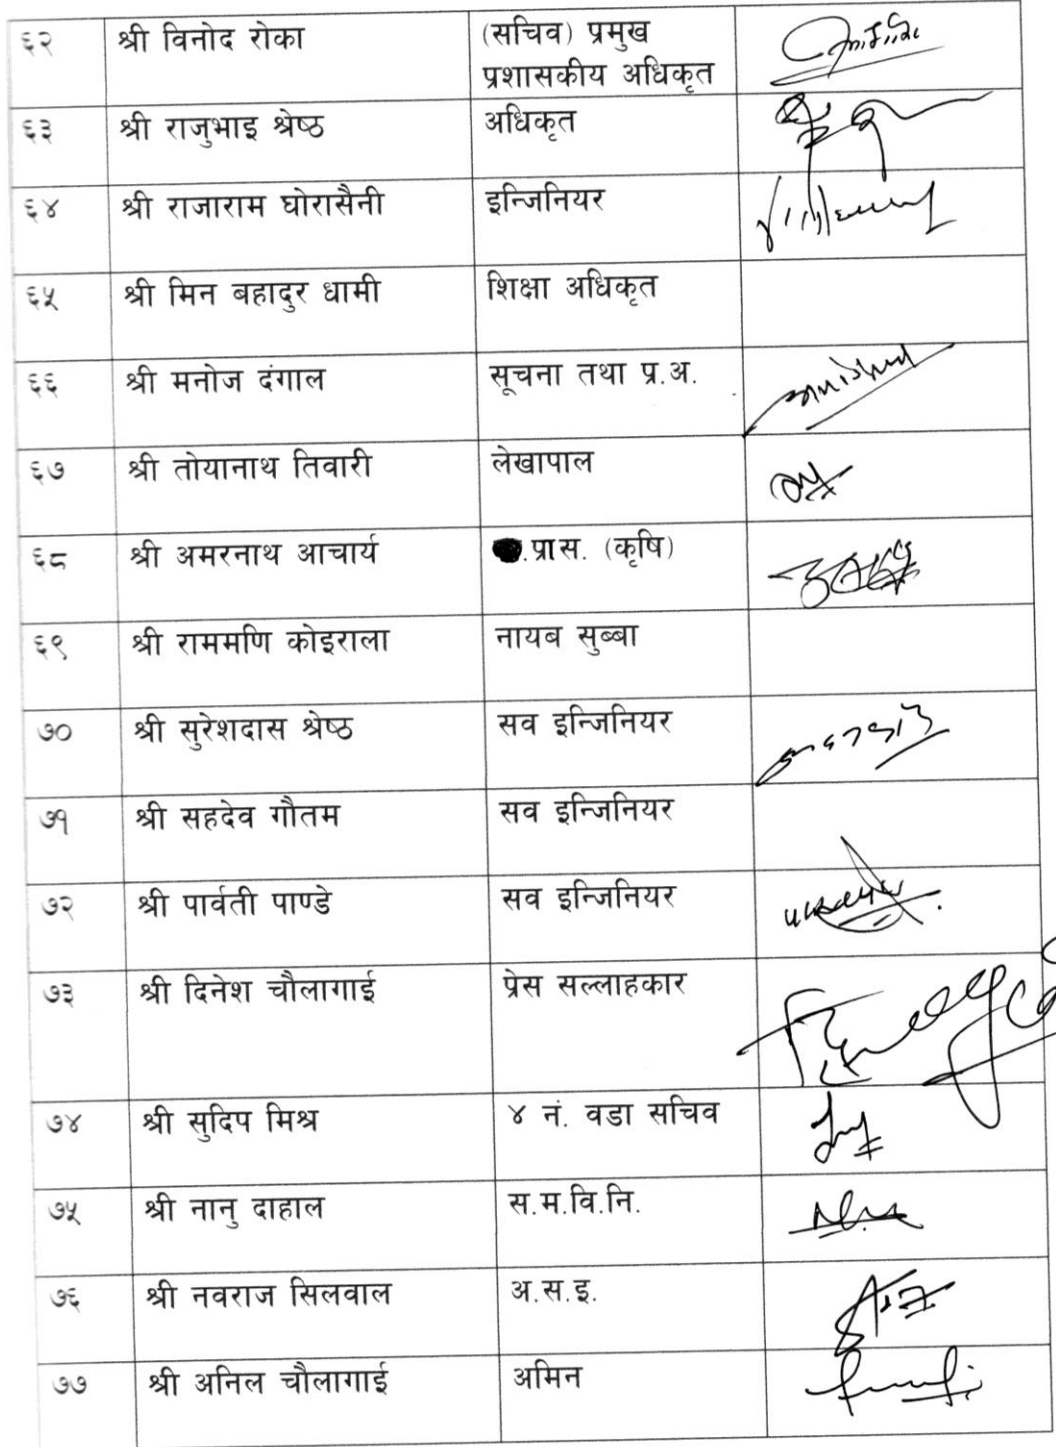 ६२ श्री विनोद रोका (सचिव) प्रमुख
प्रशासकीय अधिकृत
६३ श्री राजुभाइ श्रेष्ठ अधिकृत
६४ श्री राजाराम घोरासैनी इन्जिनियर
६५ श्री मिन बहादुर धामी शिक्षा अधिकृत
६६ श्री मनोज दंगाल सूचना तथा प्र.अ.
६७ श्री तोयानाथ तिवारी लेखापाल
६८ श्री अमरनाथ आचार्य .प्रा.स. (कृषि)
६९ श्री राममणि कोइराला नायब सुब्बा
७० श्री सुरेशदास श्रेष्ठ सव इन्जिनियर
७१ श्री सहदेव गौतम सव इन्जिनियर
७२ श्री पार्वती पाण्डे सव इन्जिनियर
७३ श्री दिनेश चौलागाई प्रेस सल्लाहकार
७४ श्री सुदिप मिश्र ४ नं. वडा सचिव
७५ श्री नानु दाहाल स.म.वि.नि.
७६ श्री नवराज सिलवाल अ.स.इ.
७७ श्री अनिल चौलागाई अमिन